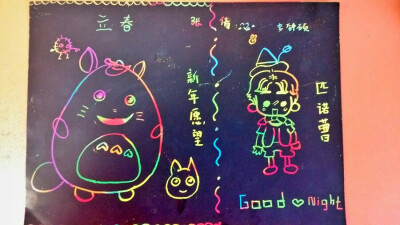 立春
张倩
新年愿望
匹诺曹
Good Night